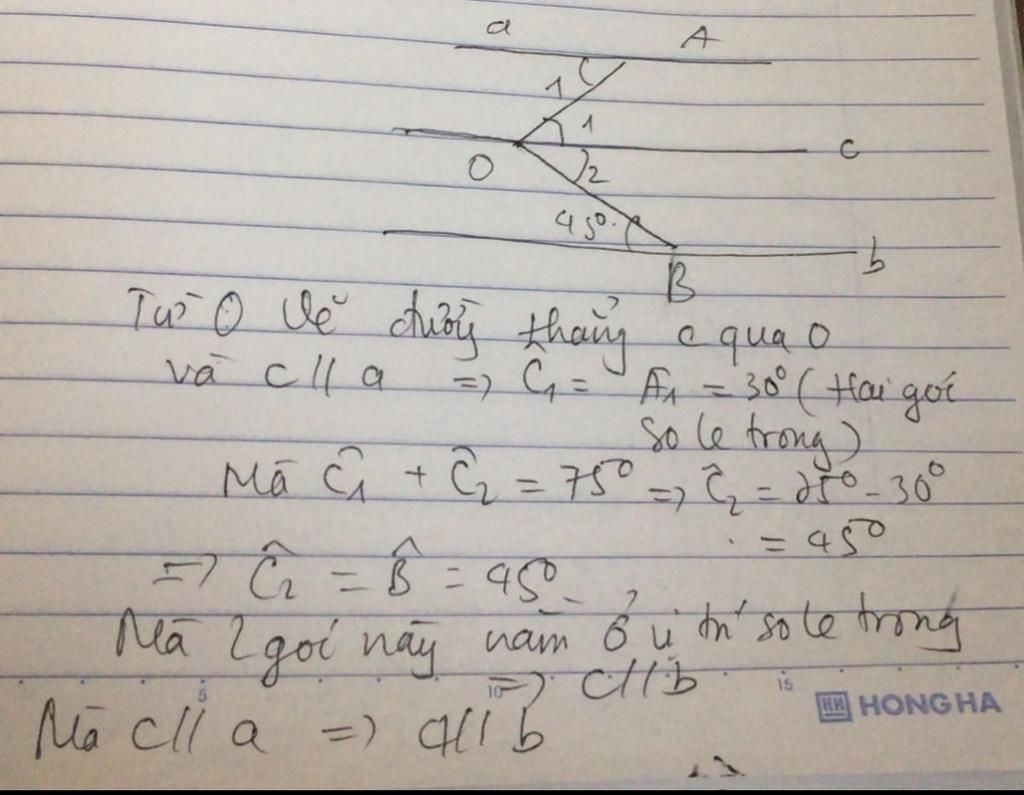 a A
1
1
O c
2
45°
b
B
Từ O Vẽ đường thẳng c qua O
và c // a => Ĉ₁ = Â₁ = 30° (Hai góc
so le trong)
Mà Ĉ₁ + Ĉ₂ = 75° => Ĉ₂ = 75° - 30°
= 45°
=> Ĉ₂ = B̂ = 45°
Mà 2 góc này nằm ở vị trí so le trong
=> c // b
5 10 15
HH HONG HA
Mà c // a => a // b